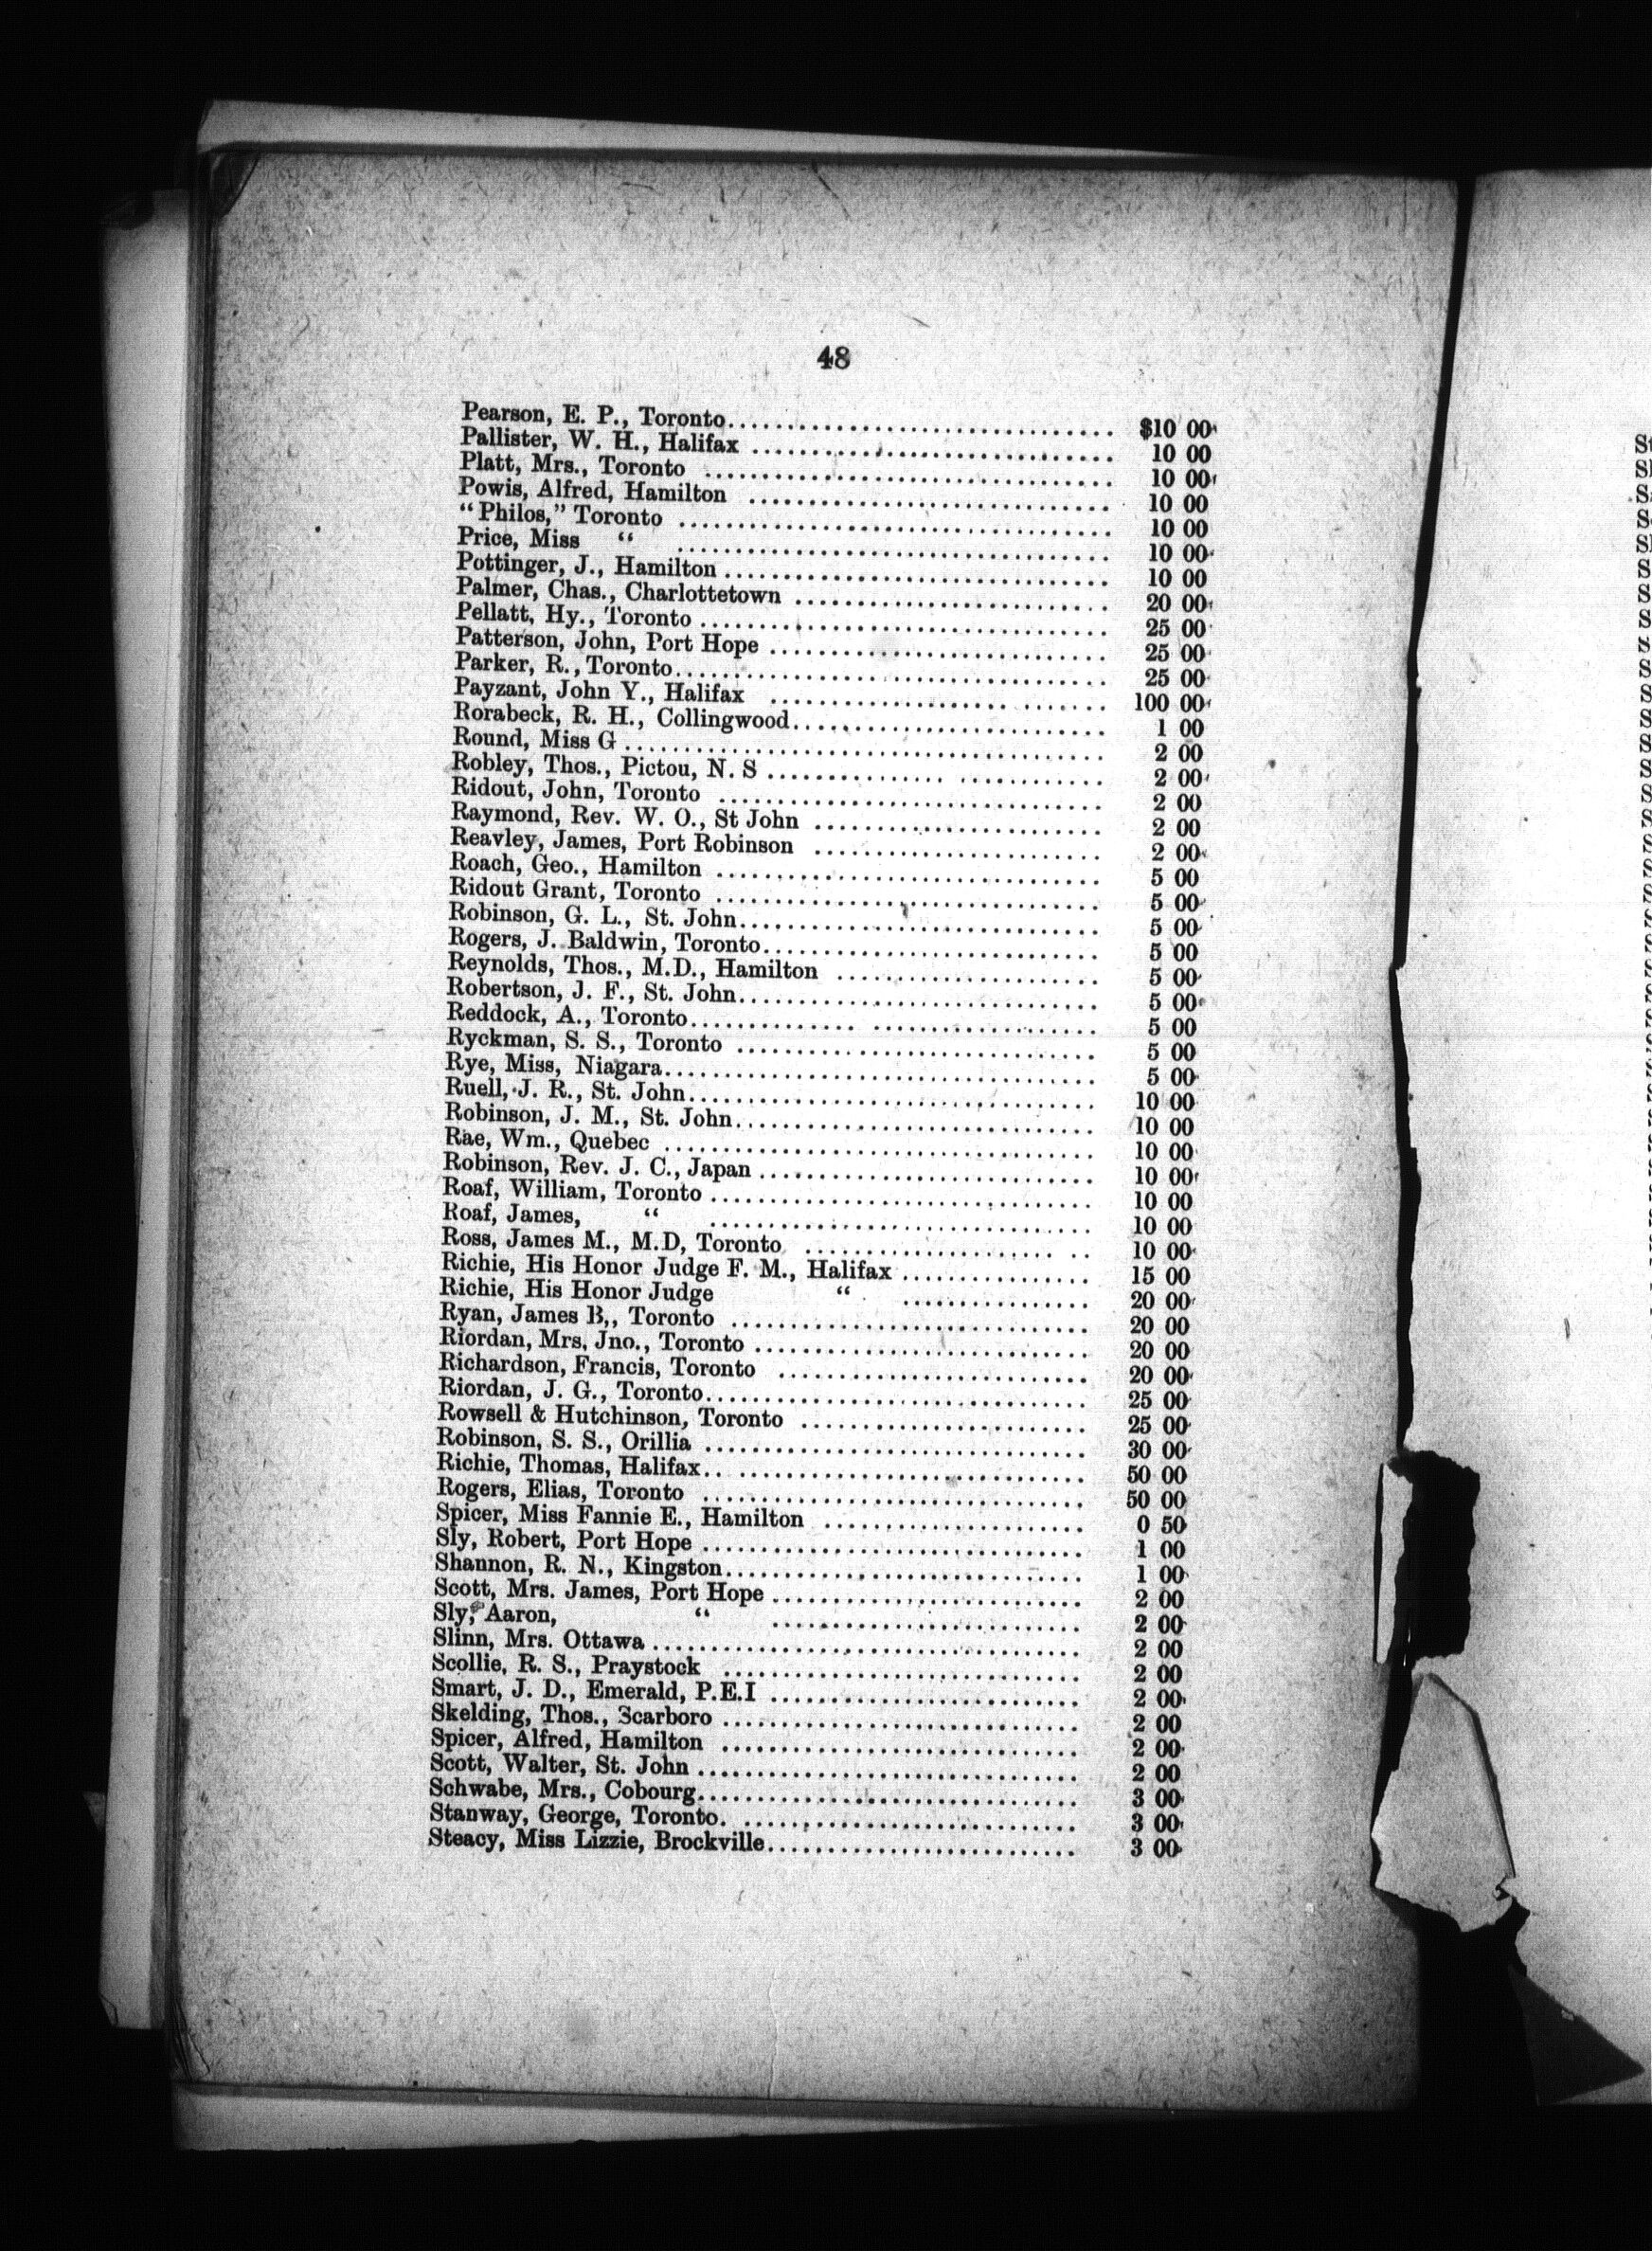 48
Pearson, E. P., Toronto........ $10 00
Pallister, W. H., Halifax ........ 10 00
Platt, Mrs., Toronto ........ 10 00
Powis, Alfred, Hamilton ........ 10 00
“Philos,” Toronto ........ 10 00
Price, Miss “ ........ 10 00
Pottinger, J., Hamilton ........ 10 00
Palmer, Chas., Charlottetown ........ 20 00
Pellatt, Hy., Toronto ........ 25 00
Patterson, John, Port Hope ........ 25 00
Parker, R., Toronto........ 25 00
Payzant, John Y., Halifax ........ 100 00
Rorabeck, R. H., Collingwood........ 1 00
Round, Miss G ........ 2 00
Robley, Thos., Pictou, N. S ........ 2 00
Ridout, John, Toronto ........ 2 00
Raymond, Rev. W. O., St John ........ 2 00
Reavley, James, Port Robinson ........ 2 00
Roach, Geo., Hamilton ........ 5 00
Ridout Grant, Toronto ........ 5 00
Robinson, G. L., St. John........ 5 00
Rogers, J. Baldwin, Toronto........ 5 00
Reynolds, Thos., M.D., Hamilton ........ 5 00
Robertson, J. F., St. John........ 5 00
Reddock, A., Toronto........ 5 00
Ryckman, S. S., Toronto ........ 5 00
Rye, Miss, Niagara........ 5 00
Ruell, J. R., St. John........ 10 00
Robinson, J. M., St. John........ 10 00
Rae, Wm., Quebec ........ 10 00
Robinson, Rev. J. C., Japan ........ 10 00
Roaf, William, Toronto ........ 10 00
Roaf, James, “ ........ 10 00
Ross, James M., M.D, Toronto ........ 10 00
Richie, His Honor Judge F. M., Halifax ........ 15 00
Richie, His Honor Judge “ ........ 20 00
Ryan, James B,, Toronto ........ 20 00
Riordan, Mrs, Jno., Toronto ........ 20 00
Richardson, Francis, Toronto ........ 20 00
Riordan, J. G., Toronto........ 25 00
Rowsell & Hutchinson, Toronto ........ 25 00
Robinson, S. S., Orillia ........ 30 00
Richie, Thomas, Halifax........ 50 00
Rogers, Elias, Toronto ........ 50 00
Spicer, Miss Fannie E., Hamilton ........ 0 50
Sly, Robert, Port Hope ........ 1 00
Shannon, R. N., Kingston........ 1 00
Scott, Mrs. James, Port Hope ........ 2 00
Sly, Aaron, “ ........ 2 00
Slinn, Mrs. Ottawa ........ 2 00
Scollie, R. S., Praystock ........ 2 00
Smart, J. D., Emerald, P.E.I ........ 2 00
Skelding, Thos., Scarboro ........ 2 00
Spicer, Alfred, Hamilton ........ 2 00
Scott, Walter, St. John ........ 2 00
Schwabe, Mrs., Cobourg........ 3 00
Stanway, George, Toronto. ........ 3 00
Steacy, Miss Lizzie, Brockville........ 3 00